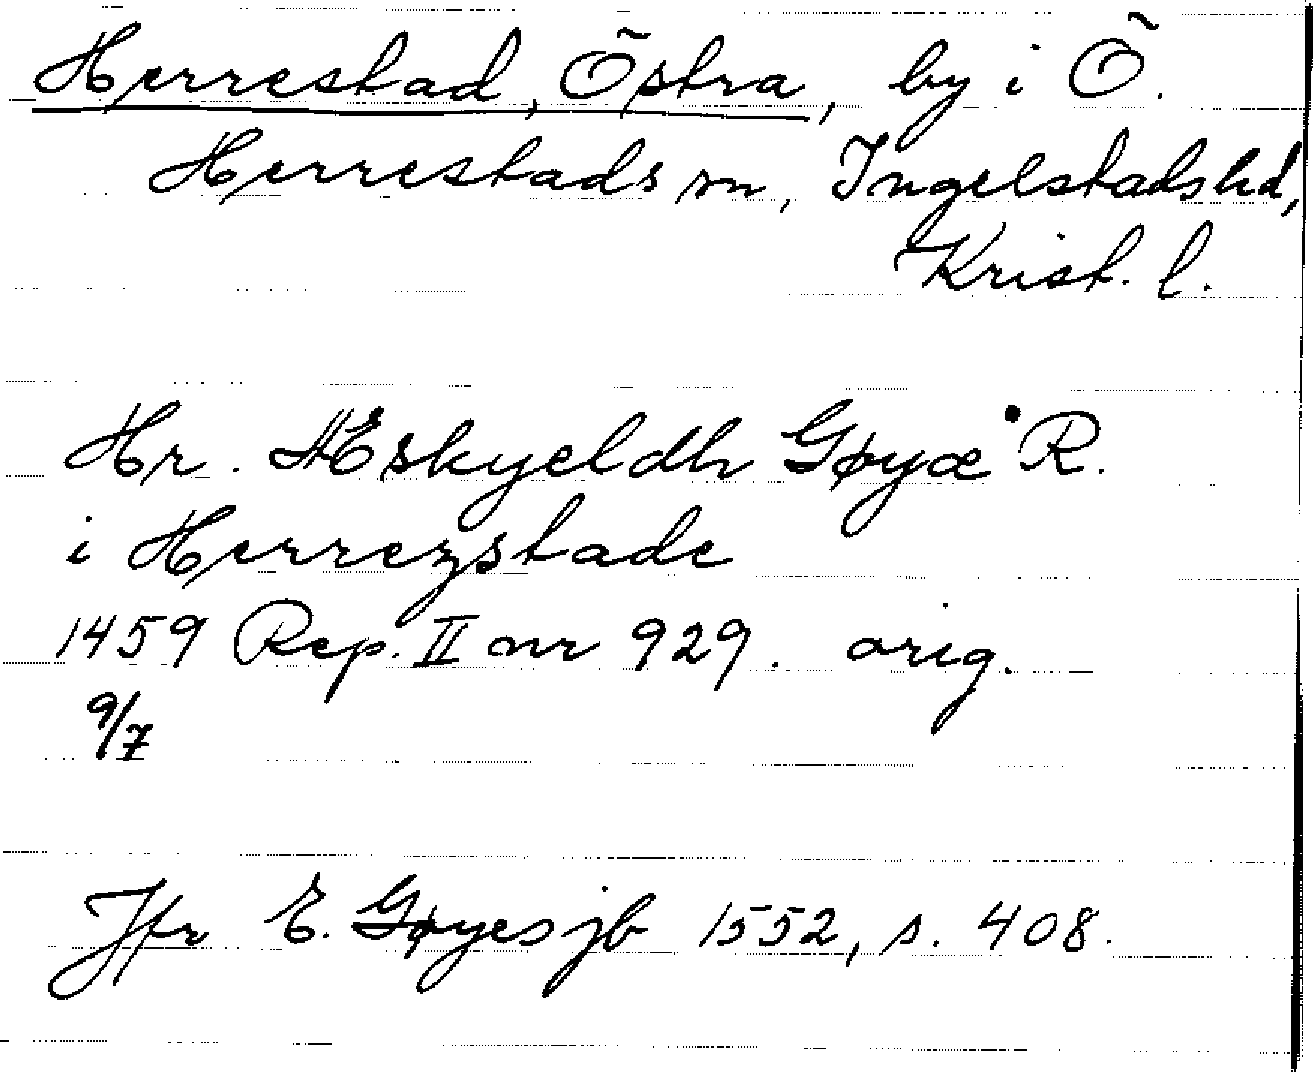 Herrestad, Östra, by i Ö.
Herrestads sn, Ingelstads hd,
Krist. l.
Hr. Æskyeldh Gøyæ R.
i Herrezstade
1459 Rep. II nr 929. orig.
9/7
Jfr E. Gøyes jb 1552, s. 408.